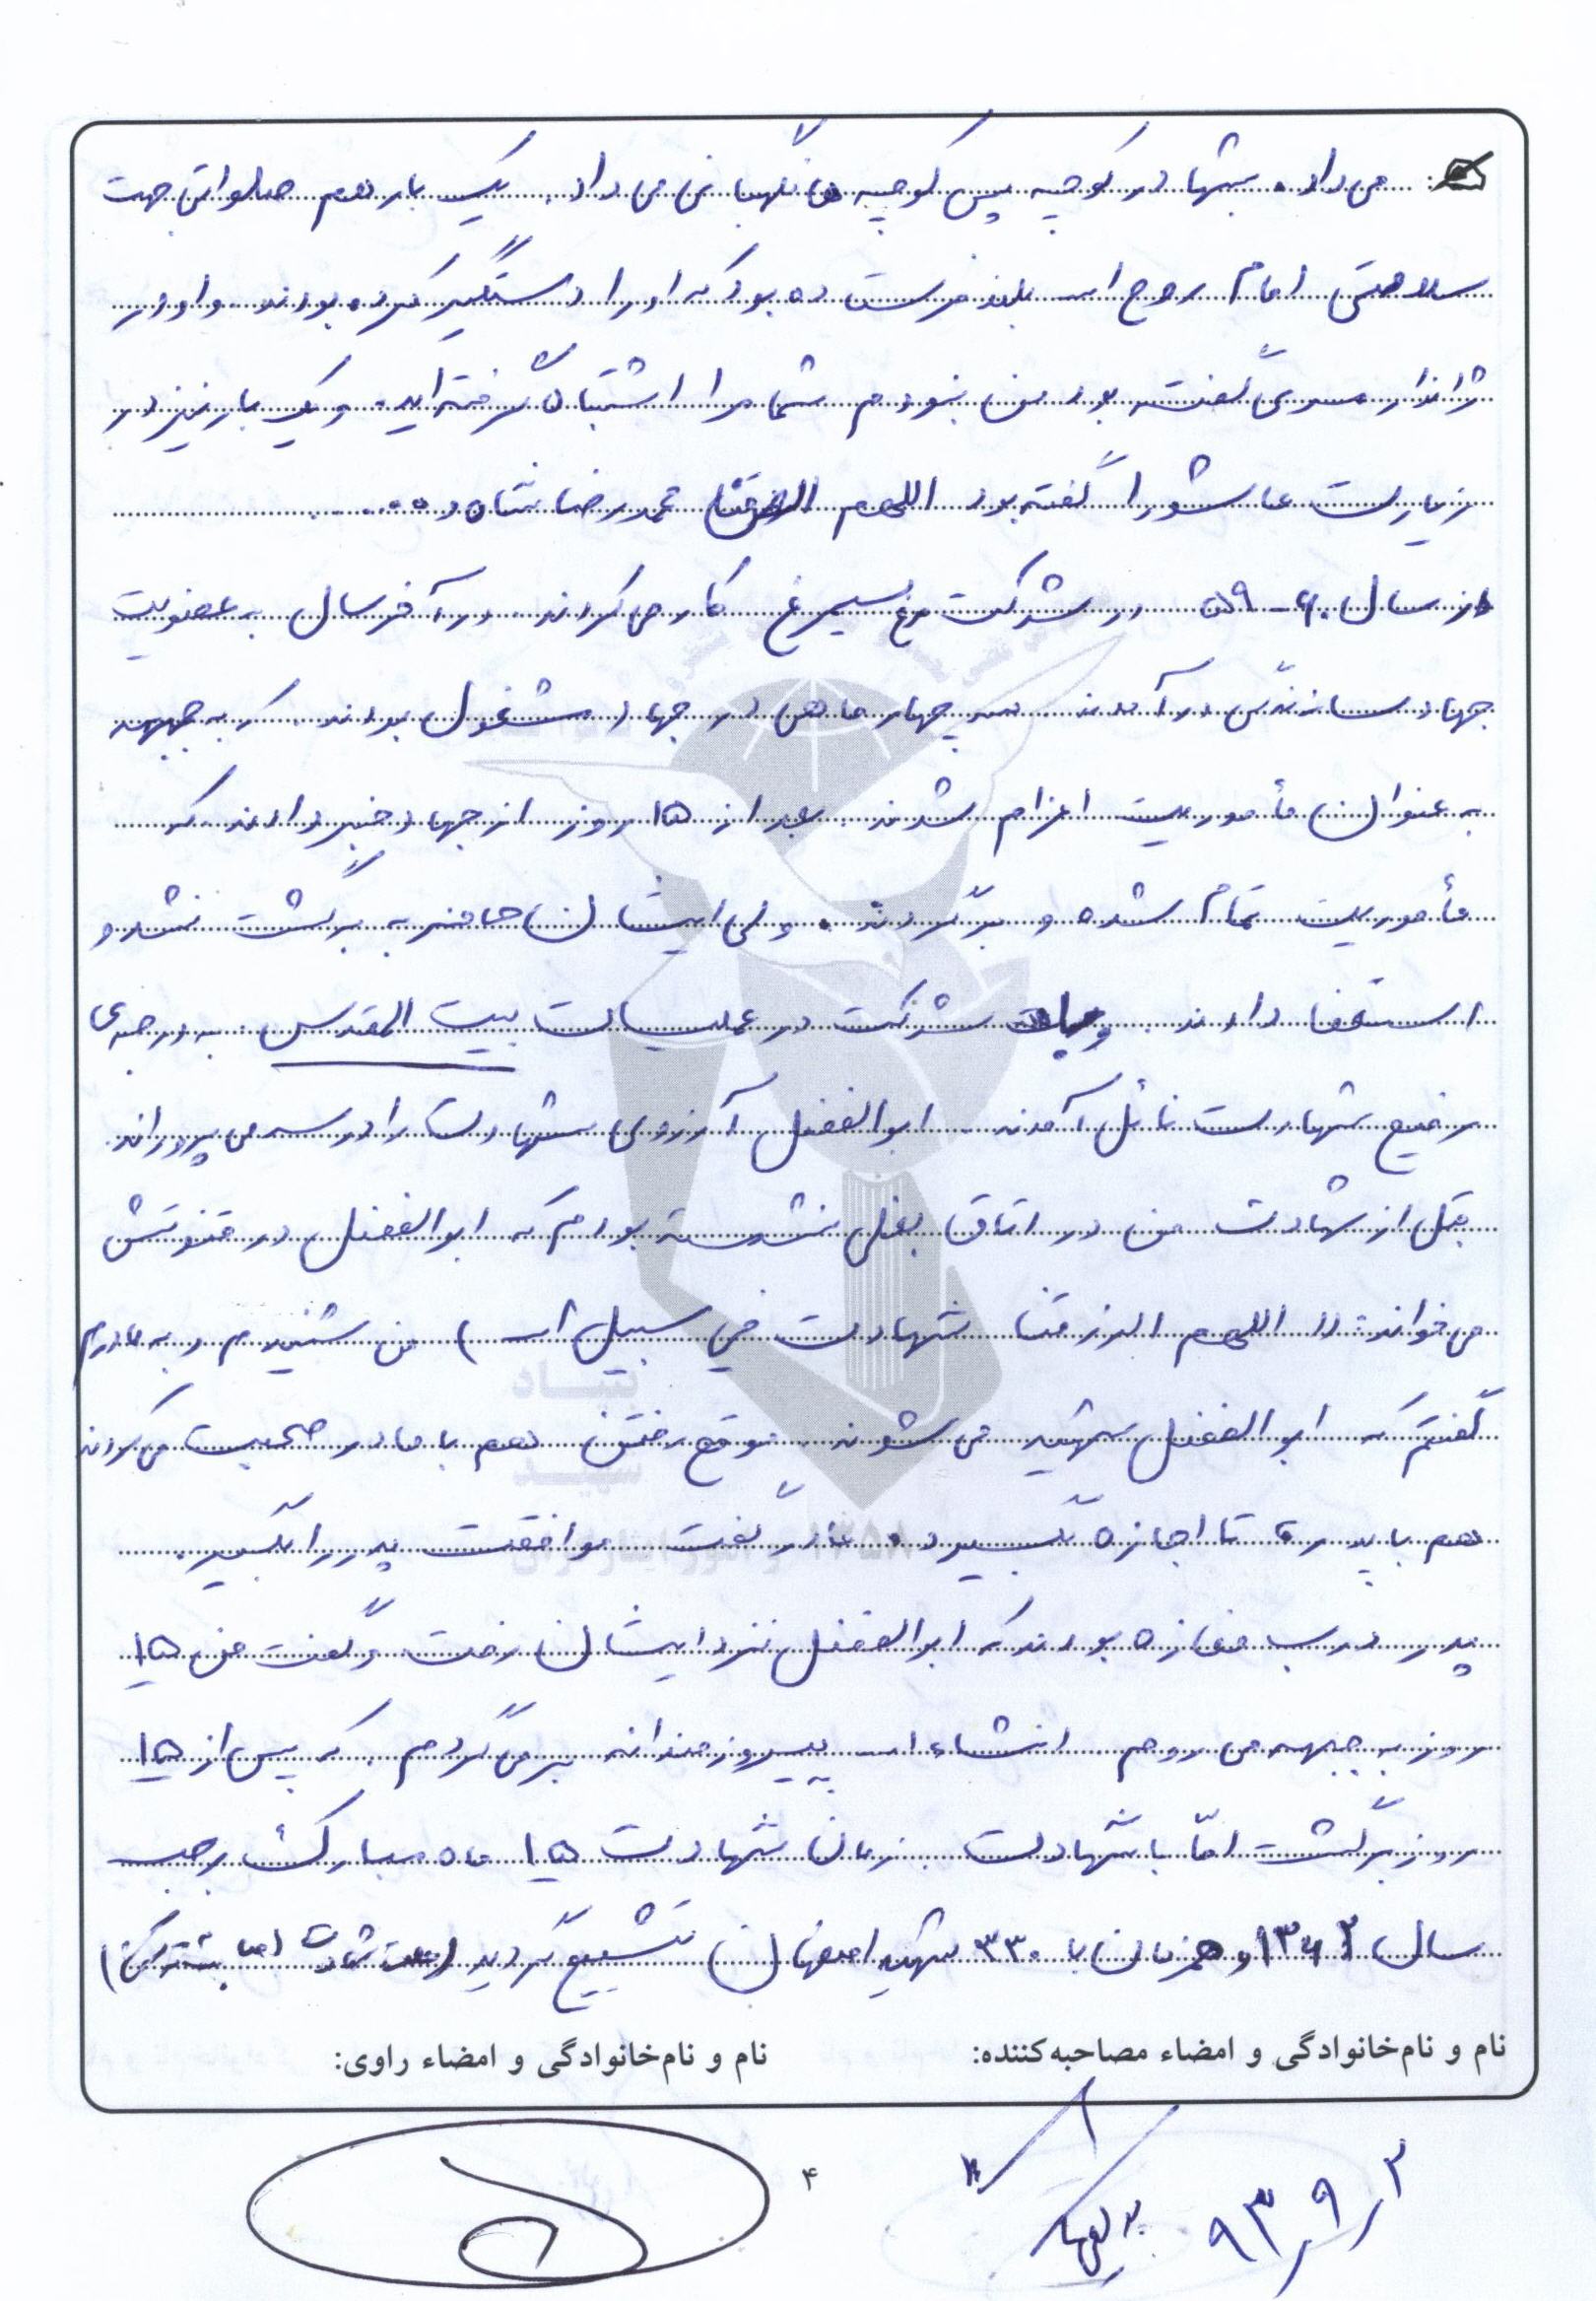 می داد. شبها در کوچه پس کوچه ها نگهبانی می داد. یک بار هم صلواتی جهت
سلامتی امام روح اله بلند فرستاده بود که او را دستگیر کرده بودند و او در
ژاندارمری گفته بود من نبودم شما مرا اشتباه گرفته اید. و یک بار نیز در
زیارت عاشورا گفته بود اللهم العن محمدرضا شاه و ....
از سال ۶۰-۵۹ در شرکت مرغ سیمرغ کار می کردند. در آخر سال به عضویت
جهاد سازندگی در آمدند سه چهار ماهی در جهاد مشغول بودند. که به جبهه
به عنوان مأموریت اعزام شدند. بعد از ۱۵ روز از جهاد خبر دادند که
مأموریت تمام شده و برگردند. ولی ایشان حاضر به برگشت نشد و
استعفا دادند و شرکت در عملیات بیت المقدس به درجه ی
رفیع شهادت نائل آمدند. ابوالفضل آرزوی شهادت را در سر می پروراند
قبل از شهادت من در اتاق بغلی نشسته بودم که ابوالفضل در قنوتش
می خواند: (( اللهم الرزقنا شهادت فی سبیل اله ) من شنیدم و به مادرم
گفتم که ابوالفضل شهید می شوند. موقع رفتن هم با مادر صحبت می کردند
هم با پدر تا اجازه بگیرد. مادر گفت موافقت پدر را بگیر.
پدر درب مغازه بودند که ابوالفضل نزد ایشان رفت و گفت من ۱۵
روز به جبهه می روم انشاء اله پیروزمندانه برمی گردم. که پس از ۱۵
روز برگشت امّا با شهادت. زمان شهادت ۱۵ ماه مبارک رجب
سال ۱۳۶۲ و همزمان با ۳۳۰ شهید اصفهان تشییع گردید (علت شهادت اصابت ترکش)
نام و نام‌خانوادگی و امضاء مصاحبه‌کننده:
نام و نام‌خانوادگی و امضاء راوی:
۴
۹۳/۹/۲
بنیاد
شهید